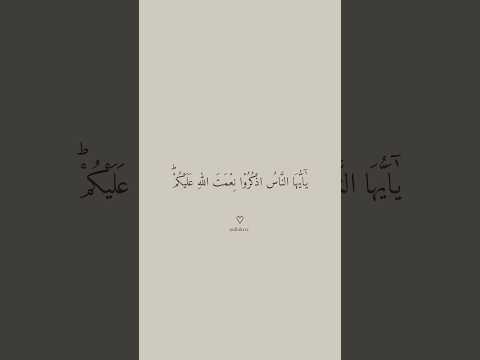 يٰۤاَيُّهَا النَّاسُ اذْكُرُوْا نِعْمَتَ اللّٰهِ عَلَيْكُمْ ؕ
♡